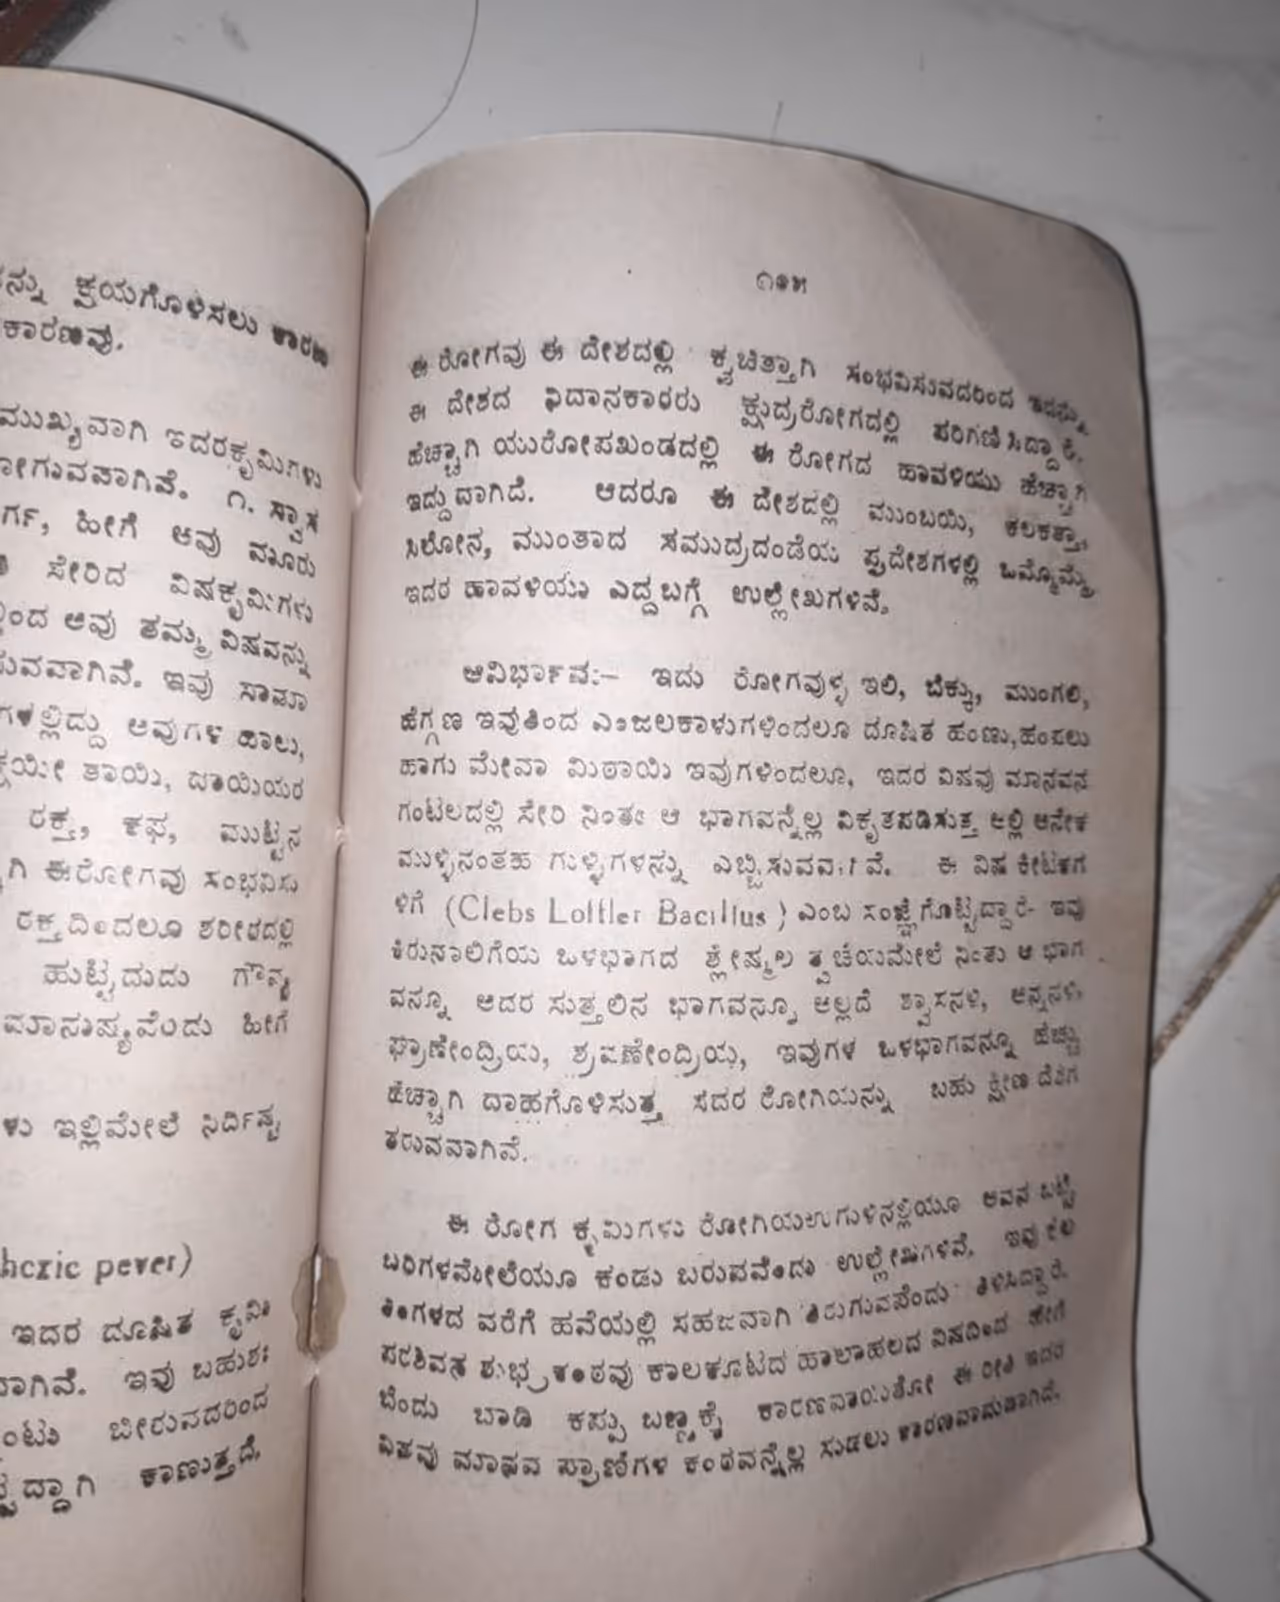 ನ್ನು ಕ್ರಯಗೊಳಿಸಲು ಕಾರಣ
ಕಾರಣವು.
ಮುಖ್ಯವಾಗಿ ಇದರಕೃಮಿಗಳು
೧. ಸ್ವಾಸ
ಹೀಗೆ ಅವು ಮೂರು
ಸೇರಿದ ವಿಷಕೃಮಿಗಳು
ಅವು ತಮ್ಮ ವಿಷವನ್ನು
ಇವು ಸಾಮಾ
ಗಳಲ್ಲಿದ್ದು ಅವುಗಳ ಹಾಲು,
ತಾಯಿ, ದಾಯಿಯರ
ರಕ್ತ, ಕಫ, ಮುಟ್ಟಿನ
ಗಿ ಈರೋಗವು ಸಂಭವಿಸು
ರಕ್ತದಿಂದಲೂ ಶರೀರದಲ್ಲಿ
ಹುಟ್ಟದುದು ಗೌನ್ಯ
ಮಾನುಷ್ಯವೆಂದು ಹೀಗೆ
ಳು ಇಲ್ಲಿಮೇಲೆ ನಿರ್ದಿಷ್ಟ
pever)
ಇದರ ದೂಷಿತ ಕೃಮಿ
ವಾಗಿವೆ. ಇವು ಬಹುಶಃ
ಬೀರುವದರಿಂದ
ದ್ದಾಗಿ ಕಾಣುತ್ತದೆ.
೧೨೫
ಈ ರೋಗವು ಈ ದೇಶದಲ್ಲಿ ಕ್ವಚಿತ್ತಾಗಿ ಸಂಭವಿಸುವದರಿಂದ ಇದನ್ನು
ಈ ದೇಶದ ನಿದಾನಕಾರರು ಕ್ಷುದ್ರರೋಗದಲ್ಲಿ ಪರಿಗಣಿಸಿದ್ದಾರೆ.
ಹೆಚ್ಚಾಗಿ ಯುರೋಪಖಂಡದಲ್ಲಿ ಈ ರೋಗದ ಹಾವಳಿಯು ಹೆಚ್ಚಾಗಿ
ಇದ್ದುದಾಗಿದೆ. ಆದರೂ ಈ ದೇಶದಲ್ಲಿ ಮುಂಬಯಿ, ಕಲಕತ್ತಾ,
ಸಿಲೋನ, ಮುಂತಾದ ಸಮುದ್ರದಂಡೆಯ ಪ್ರದೇಶಗಳಲ್ಲಿ ಒಮ್ಮೊಮ್ಮೆ
ಇದರ ಹಾವಳಿಯು ಎದ್ದಬಗ್ಗೆ ಉಲ್ಲೇಖಗಳಿವೆ.
ಆವಿರ್ಭಾವ:- ಇದು ರೋಗವುಳ್ಳ ಇಲಿ, ಬೆಕ್ಕು, ಮುಂಗಲಿ,
ಹೆಗ್ಗಣ ಇವುತಿಂದ ಎಂಜಲಕಾಳುಗಳಿಂದಲೂ ದೂಷಿತ ಹಂಣು,ಹಂಪಲು
ಹಾಗು ಮೇವಾ ಮಿಠಾಯಿ ಇವುಗಳಿಂದಲೂ, ಇದರ ವಿಷವು ಮಾನವನ
ಗಂಟಲದಲ್ಲಿ ಸೇರಿ ನಿಂತು ಆ ಭಾಗವನ್ನೆಲ್ಲ ವಿಕೃತಪಡಿಸುತ್ತ ಅಲ್ಲಿ ಅನೇಕ
ಮುಳ್ಳಿನಂತಹ ಗುಳ್ಳಿಗಳನ್ನು ಎಬ್ಬಿಸುವವಾಗಿವೆ. ಈ ವಿಷ ಕೀಟಕಗ
ಳಿಗೆ (Clebs Lottler Bacillus ) ಎಂಬ ಸಂಜ್ಞೆಗೊಟ್ಟಿದ್ದಾರೆ- ಇವು
ಕಿರುನಾಲಿಗೆಯ ಒಳಭಾಗದ ಶ್ಲೇಷ್ಮಲ ತ್ವಚೆಯಮೇಲೆ ನಿಂತು ಆ ಭಾಗ
ವನ್ನೂ ಅದರ ಸುತ್ತಲಿನ ಭಾಗವನ್ನೂ ಅಲ್ಲದೆ ಶ್ವಾಸನಳಿ, ಅನ್ನನಳಿ,
ಘ್ರಾಣೇಂದ್ರಿಯ, ಶ್ರವಣೇಂದ್ರಿಯ, ಇವುಗಳ ಒಳಭಾಗವನ್ನೂ ಹೆಚ್ಚು
ಹೆಚ್ಚಾಗಿ ದಾಹಗೊಳಿಸುತ್ತ ಸದರ ರೋಗಿಯನ್ನು ಬಹು ಕ್ಷೀಣ ದೆಶೆಗ
ತರುವವಾಗಿವೆ.
ಈ ರೋಗ ಕೃಮಿಗಳು ರೋಗಿಯಉಗುಳಿನಲ್ಲಿಯೂ ಅವನ ಬಟ್ಟೆ
ಬರಿಗಳಮೇಲೆಯೂ ಕಂಡು ಬರುವವೆಂದು ಉಲ್ಲೇಖಗಳಿವೆ. ಇವು ಕೆಲ
ತಿಂಗಳದ ವರೆಗೆ ಹವೆಯಲ್ಲಿ ಸಹಜವಾಗಿ ತಿರುಗುವವೆಂದು ತಿಳಿಸಿದ್ದಾರೆ.
ಪರಶಿವನ ಶುಭ್ರಕಂಠವು ಕಾಲಕೂಟದ ಹಾಲಾಹಲದ ವಿಷದಿಂದ ಹೇಗೆ
ಬೆಂದು ಬಾಡಿ ಕಪ್ಪು ಬಣ್ಣಕ್ಕೆ ಕಾರಣವಾಯಿತೋ ಈ ರೀತಿ ಇದರ
ವಿಷವು ಮಾನವ ಪ್ರಾಣಿಗಳ ಕಂಠವನ್ನೆಲ್ಲ ಸುಡಲು ಕಾರಣವಾದುದಾಗಿದೆ.